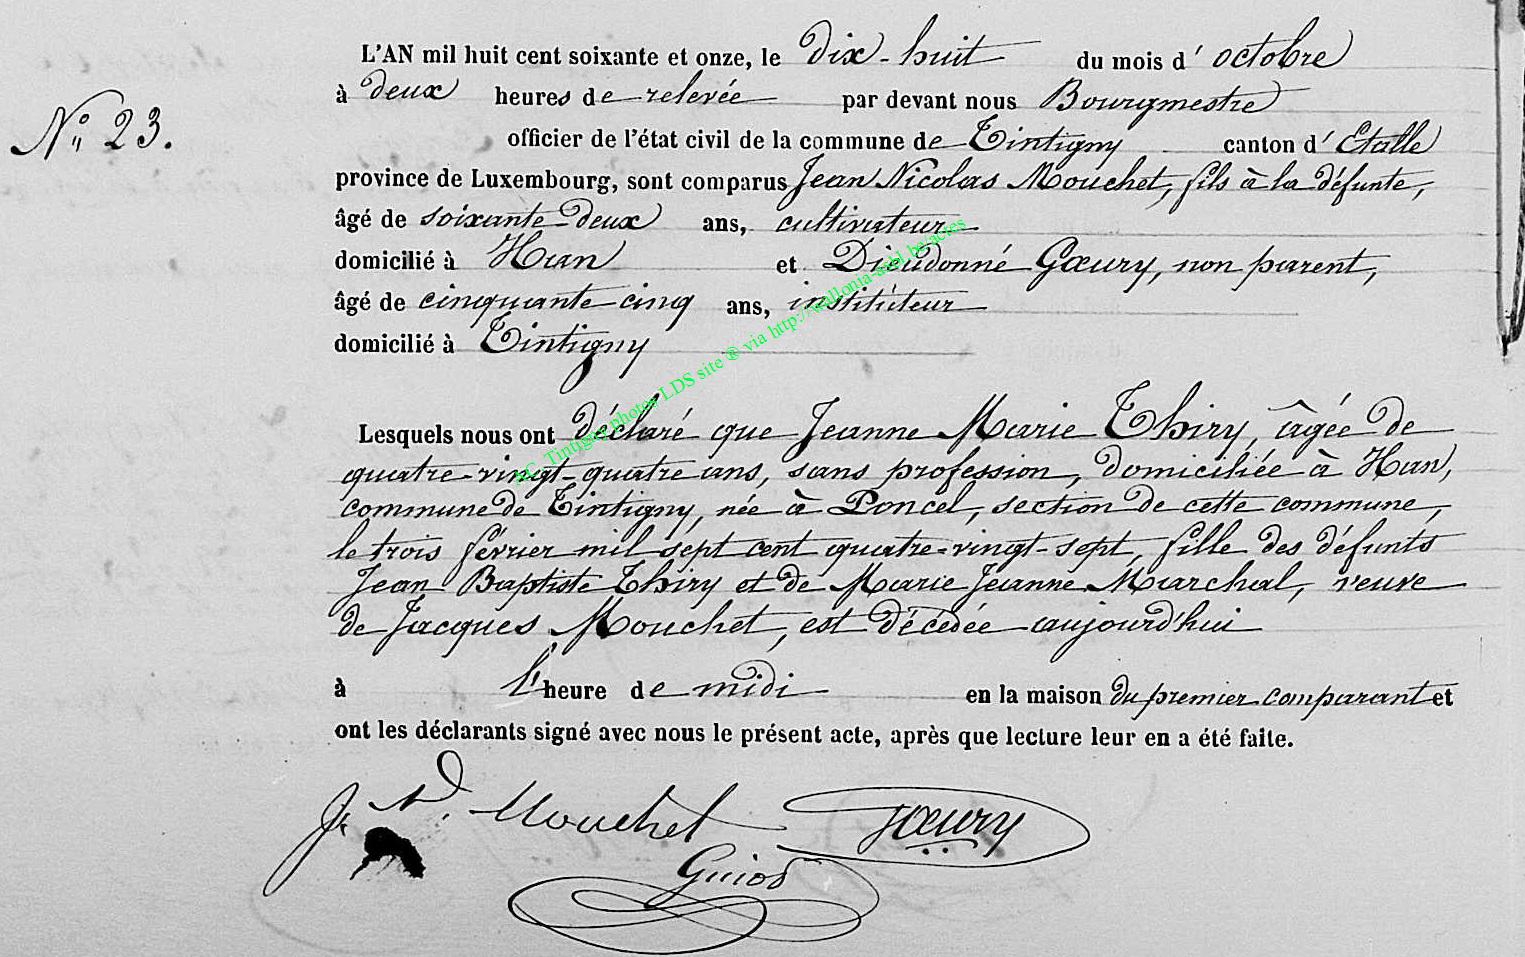 L'AN mil huit cent soixante et onze, le dix-huit du mois d'octobre
à deux heures de relevée par devant nous Bourgmestre
N° 23.
officier de l'état civil de la commune de Tintigny canton d'Etalle
province de Luxembourg, sont comparus Jean Nicolas Mouchet, fils à la défunte,
âgé de soixante-deux ans, cultivateur
domicilié à Han et Dieudonné Gœury, non parent,
âgé de cinquante-cinq ans, instituteur
domicilié à Tintigny
Lesquels nous ont déclaré que Jeanne Marie Thiry, âgée de
quatre-vingt-quatre ans, sans profession, domiciliée à Han,
commune de Tintigny, née à Poncel, section de cette commune,
le trois février mil sept cent quatre-vingt-sept, fille des défunts
Jean Baptiste Thiry et de Marie Jeanne Marchal, veuve
de Jacques Mouchet, est décédée aujourd'hui
à l'heure de midi en la maison du premier comparant et
ont les déclarants signé avec nous le présent acte, après que lecture leur en a été faite.
J. N. Mouchet Gœury
Guiot
Tintigny photos LDS site ® via http://wallonia-asbl.be/actes